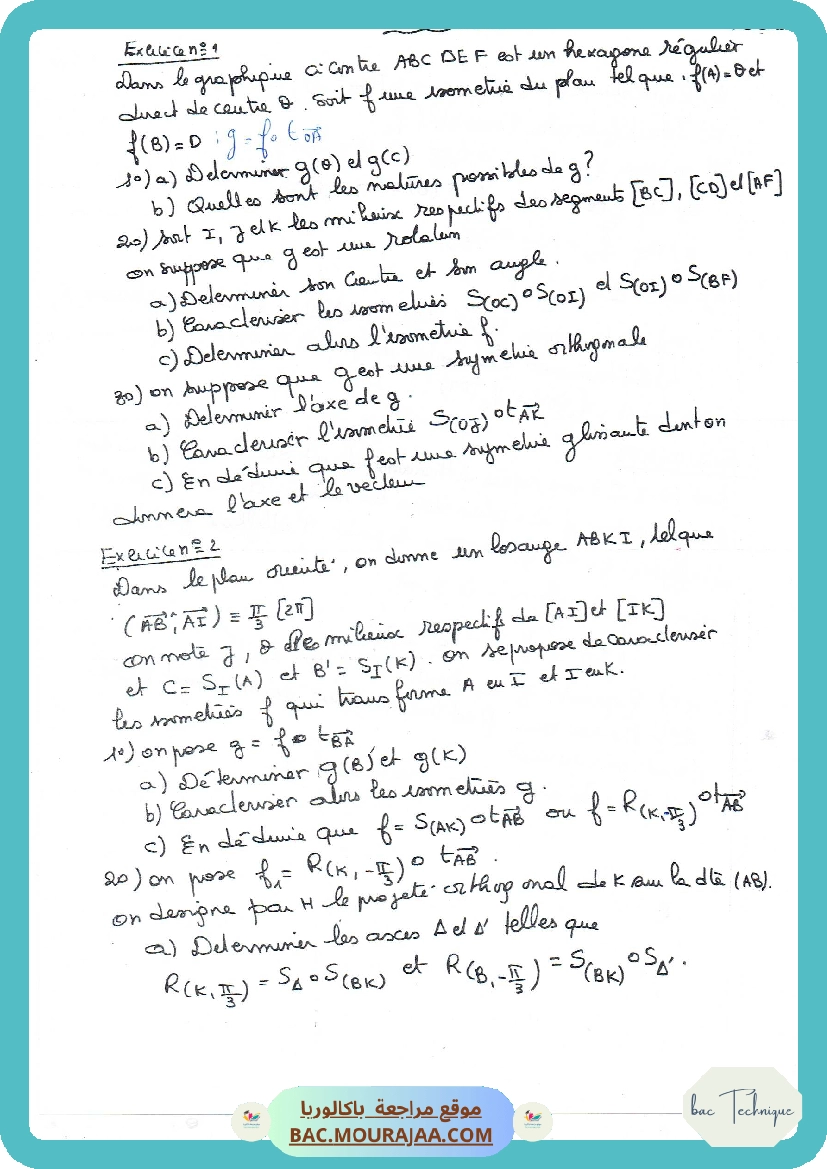 Exercice n°1
Dans le graphique ci-contre ABCDEF est un hexagone régulier
direct de centre O. Soit f une isometrie du plan tel que f(A)=O et
f(B)=D ; g = f∘t_{\overrightarrow{OA}}
1°) a) Determiner g(O) et g(C)
b) Quelles sont les natures possibles de g ?
2°) soit I, J et K les milieux respectifs des segments [BC], [CD] et [AF]
on suppose que g est une rotation
a) Determiner son Centre et son angle.
b) Caracteriser les isometries S(OC)∘S(OI) et S(OI)∘S(BF)
c) Determiner alors l'isometrie f.
3°) on suppose que g est une symetrie orthogonale
a) Determiner l'axe de g.
b) Caracteriser l'isometrie S(OJ)∘t_{\overrightarrow{AK}}
c) En déduire que f est une symetrie glissante dont on
donnera l'axe et le vecteur
Exercice n°2
Dans le plan orienté, on donne un losange ABKI, tel que
(\overrightarrow{AB}, \overrightarrow{AI}) ≡ π/3 [2π]
on note J, O les milieux respectifs de [AI] et [IK]
et C = S_I(A) et B' = S_I(K). on se propose de caracteriser
les isometries f qui transforme A en I et I en K.
1°) on pose g = f∘t_{\overrightarrow{BA}}
a) Déterminer g(B) et g(K)
b) Caracteriser alors les isometries g.
c) En déduire que f = S(AK)∘t_{\overrightarrow{AB}} ou f = R(K,-π/3)∘t_{\overrightarrow{AB}}
2°) on pose f₁ = R(K,-π/3)∘t_{\overrightarrow{AB}}.
on designe par H le projeté orthogonal de K sur la dte (AB).
a) Determiner les axes Δ et Δ' telles que
R(K,π/3) = S_Δ∘S(BK) et R(B,-π/3) = S(BK)∘S_Δ'.
bac Technique
موقع مراجعة باكالوريا
BAC.MOURAJAA.COM